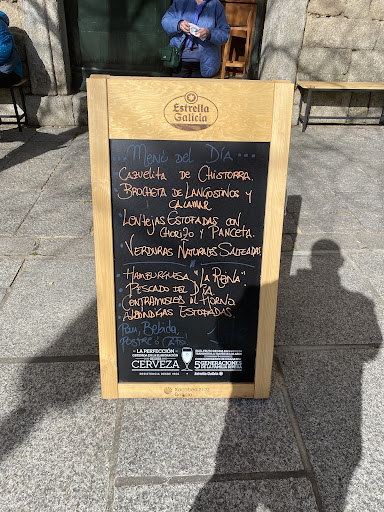 Estrella
Galicia
... Menú del Día ...
Cazuelita de Chistorra.
Brocheta de Langostinos y
Calamar
Lentejas Estofadas con
Chorizo y Panceta.
Verduras Naturales Salteadas
Hamburguesa "La Reina"
Pescado del Día
Contramuslo al Horno
Albóndigas Estofadas.
Pan, Bebida,
Postre o Café
LA PERFECCIÓN
CERVEZA
5 GENERACIONES
DE LA FAMILIA RIVERA
Estrella Galicia